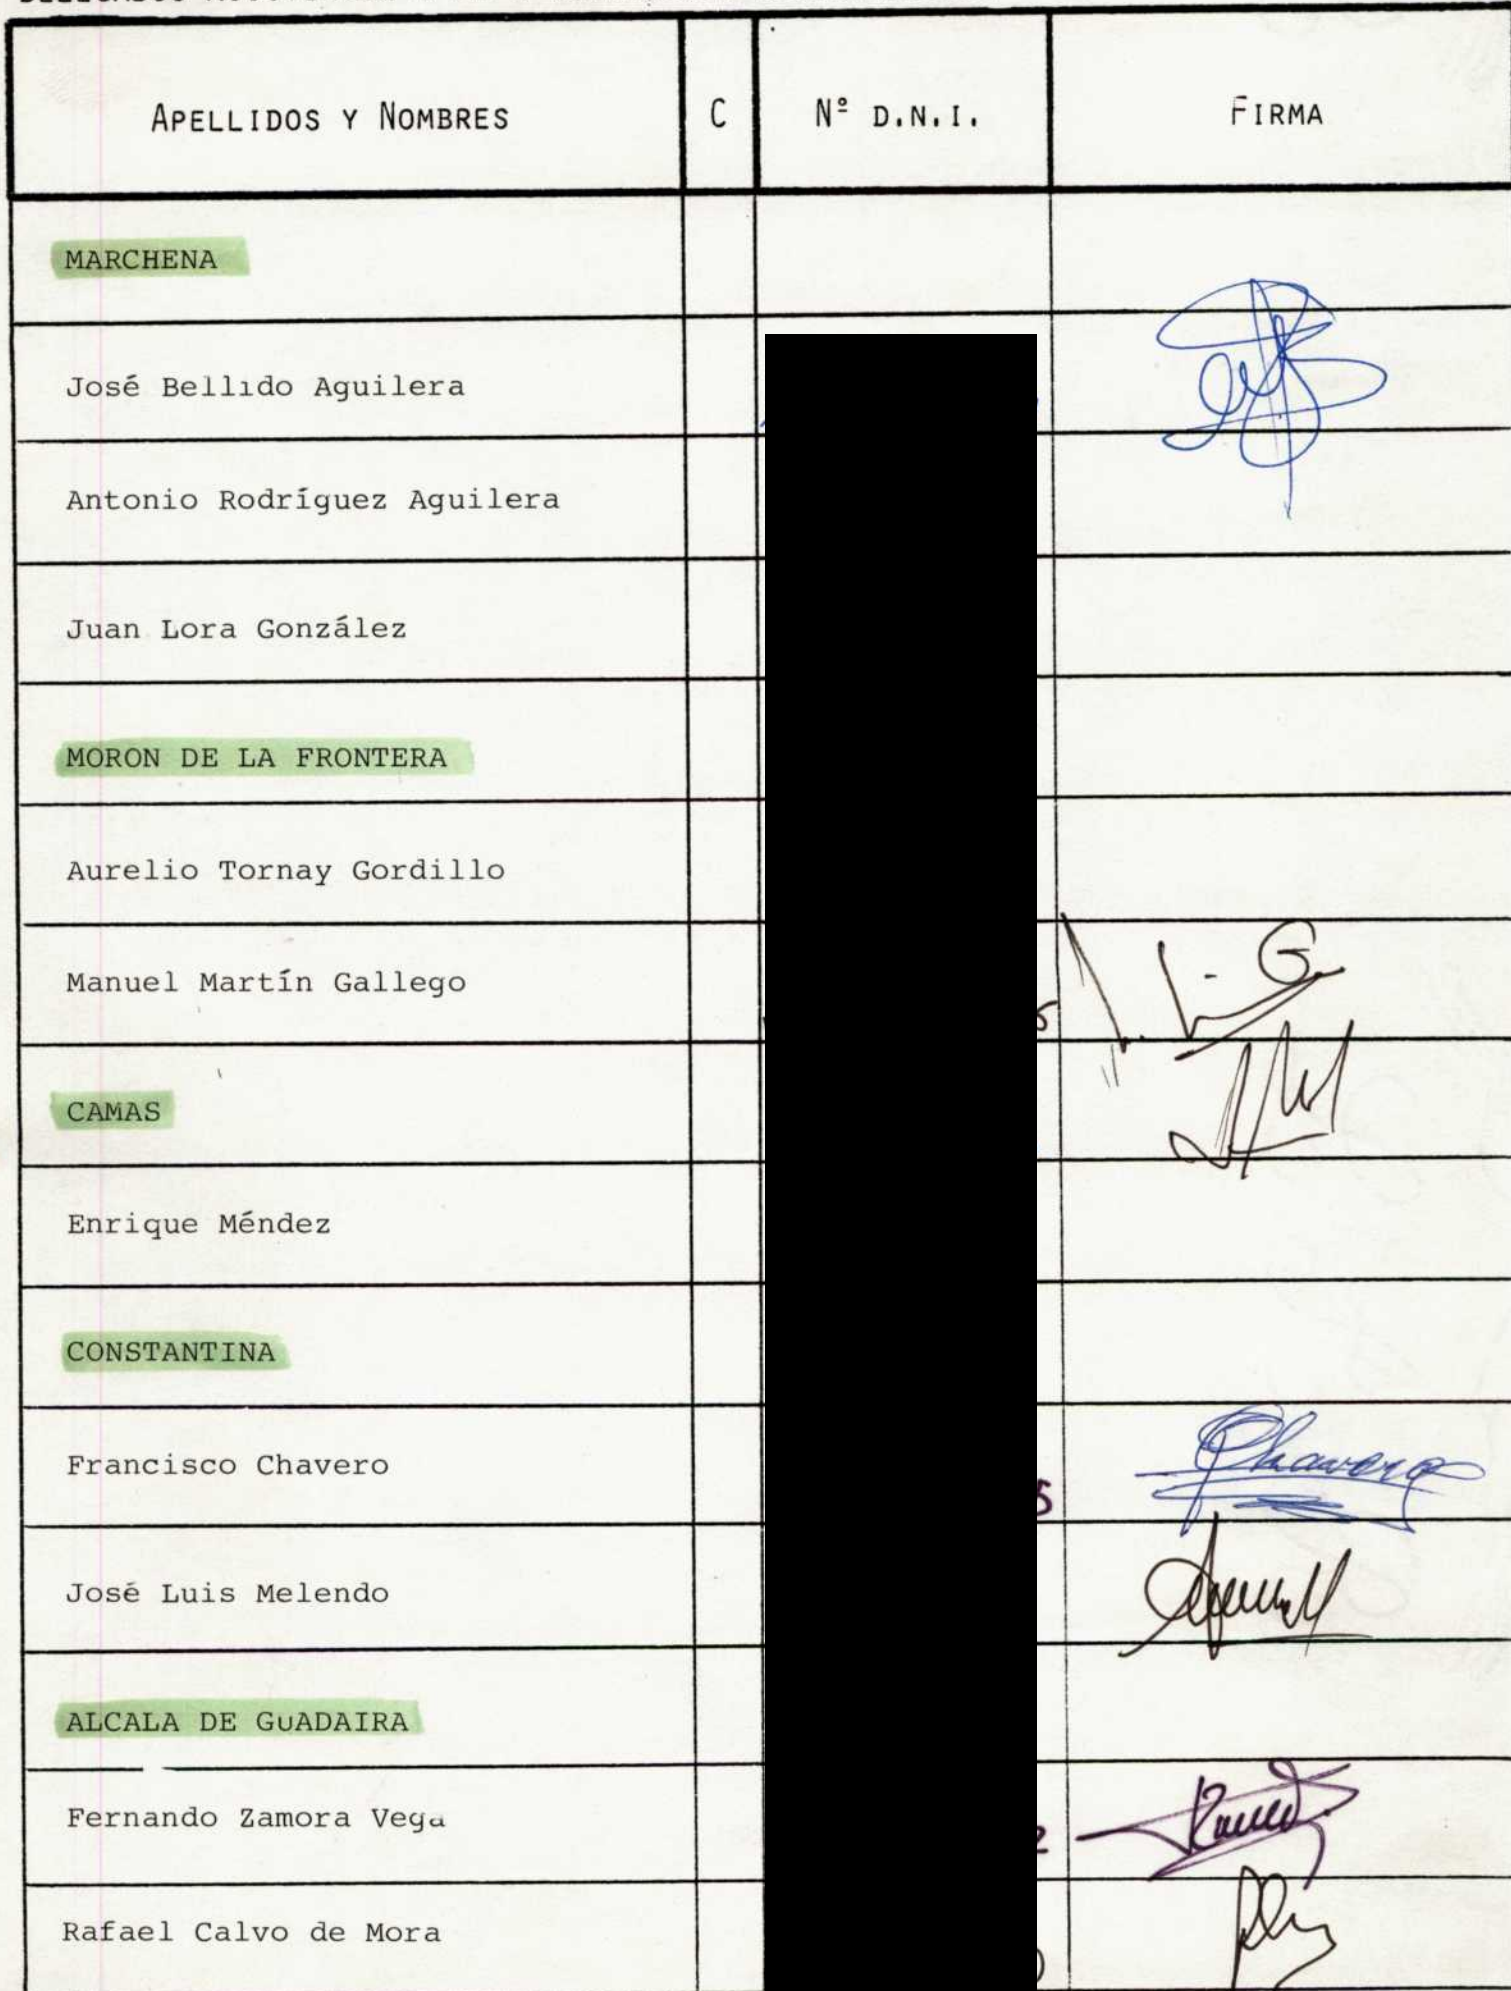 APELLIDOS Y NOMBRES C Nº D.N.I. FIRMA
MARCHENA
José Bellido Aguilera
Antonio Rodríguez Aguilera
Juan Lora González
MORON DE LA FRONTERA
Aurelio Tornay Gordillo
Manuel Martín Gallego
CAMAS
Enrique Méndez
CONSTANTINA
Francisco Chavero
José Luis Melendo
ALCALA DE GUADAIRA
Fernando Zamora Vega
Rafael Calvo de Mora